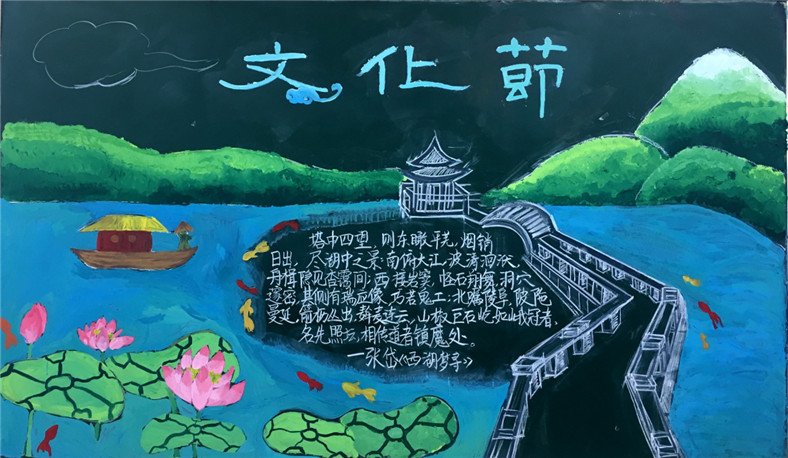 文化節
塔中四望,则东瞰平芜,烟销
日出,尽湖中之景,南俯大江,波涛洄洑,
舟楫隐见杳霭间,西接岩窦,怪石翔舞,洞穴
邃密,其侧有瑞应像,巧若鬼工,北瞩陵阜,陂陀
曼延,箭枿丛出,麰麦连云,山椒巨石屹如峨冠者,
名先照坛,相传道者镇魔处。
—张岱《西湖梦寻》